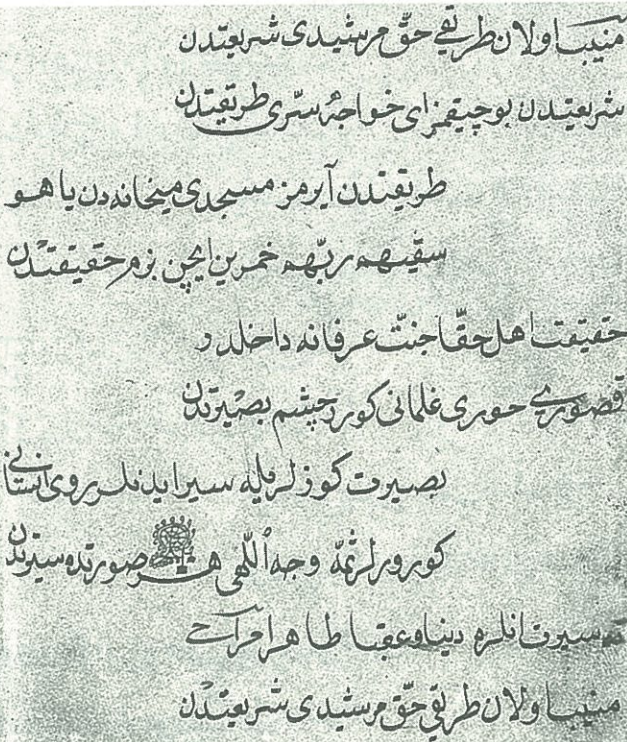 منیبا اولان طریقی حقّ مرشیدی شریعتدن
شریعتدن بوچیقمز ای خواجۀ سرّی طریقتدن
طریقتدن آیرمز مسجدی میخانه دن یا هو
سقیهم ربّهم خمرین ایچن بزم حقیقتدن
حقیقت اهل حقّا جنّت عرفانه داخلدر
قصوری حوری غلمانی کورر چشم بصیرتدن
بصیرت کوزلریله سیر ایدنلر روی انسانی
کورورلر ثمّه وجه ٱللّهی هر صورتده سیرتدن
سیرت انلره دنیا وعقبا
منیبا اولان طریقی حقّ مرشیدی شریعتدن